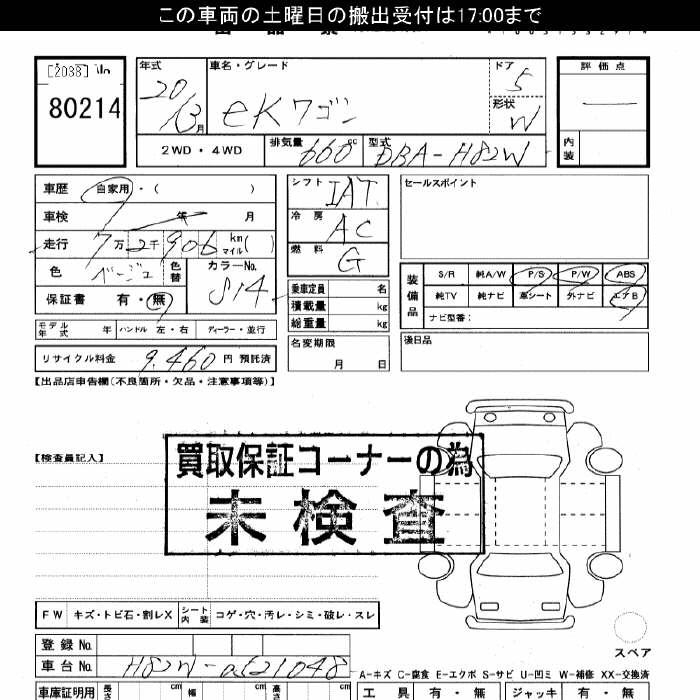 この車両の土曜日の搬出受付は17:00まで
[2038] No
80214
年式 20/13月
車名・グレード eKワゴン
ドア 5
形状 W
評価点
内装
2WD・4WD
排気量 660cc
型式 DBA-H82W
車歴 自家用・( )
車検 年 月
走行 7万2千906 km マイル( )
色 ベージュ 色替
カラーNo. S14
保証書 有・無
モデル年式 年 ハンドル 左・右 ディーラー・並行
リサイクル料金 9,460 円 預託済
シフト IAT
冷房 AC
燃料 G
乗車定員 名
積載量 kg
総重量 kg
名変期限
月 日
セールスポイント
装備品
S/R 純A/W P/S P/W ABS
純TV 純ナビ 革シート 外ナビ エアB
ナビ型番:
後日品
【出品店申告欄(不良箇所・欠品・注意事項等)】
【検査員記入】
買取保証コーナーの為
未検査
FW キズ・トビ石・割レX シート内装 コゲ・穴・汚レ・シミ・破レ・スレ
スペア
登録No.
車台No. H82W-
A-キズ C-腐食 E-エクボ S-サビ U-凹ミ W-補修 XX-交換済
車庫証明用 長さ cm 幅 cm cm
工具 有・無 ジャッキ 有・無